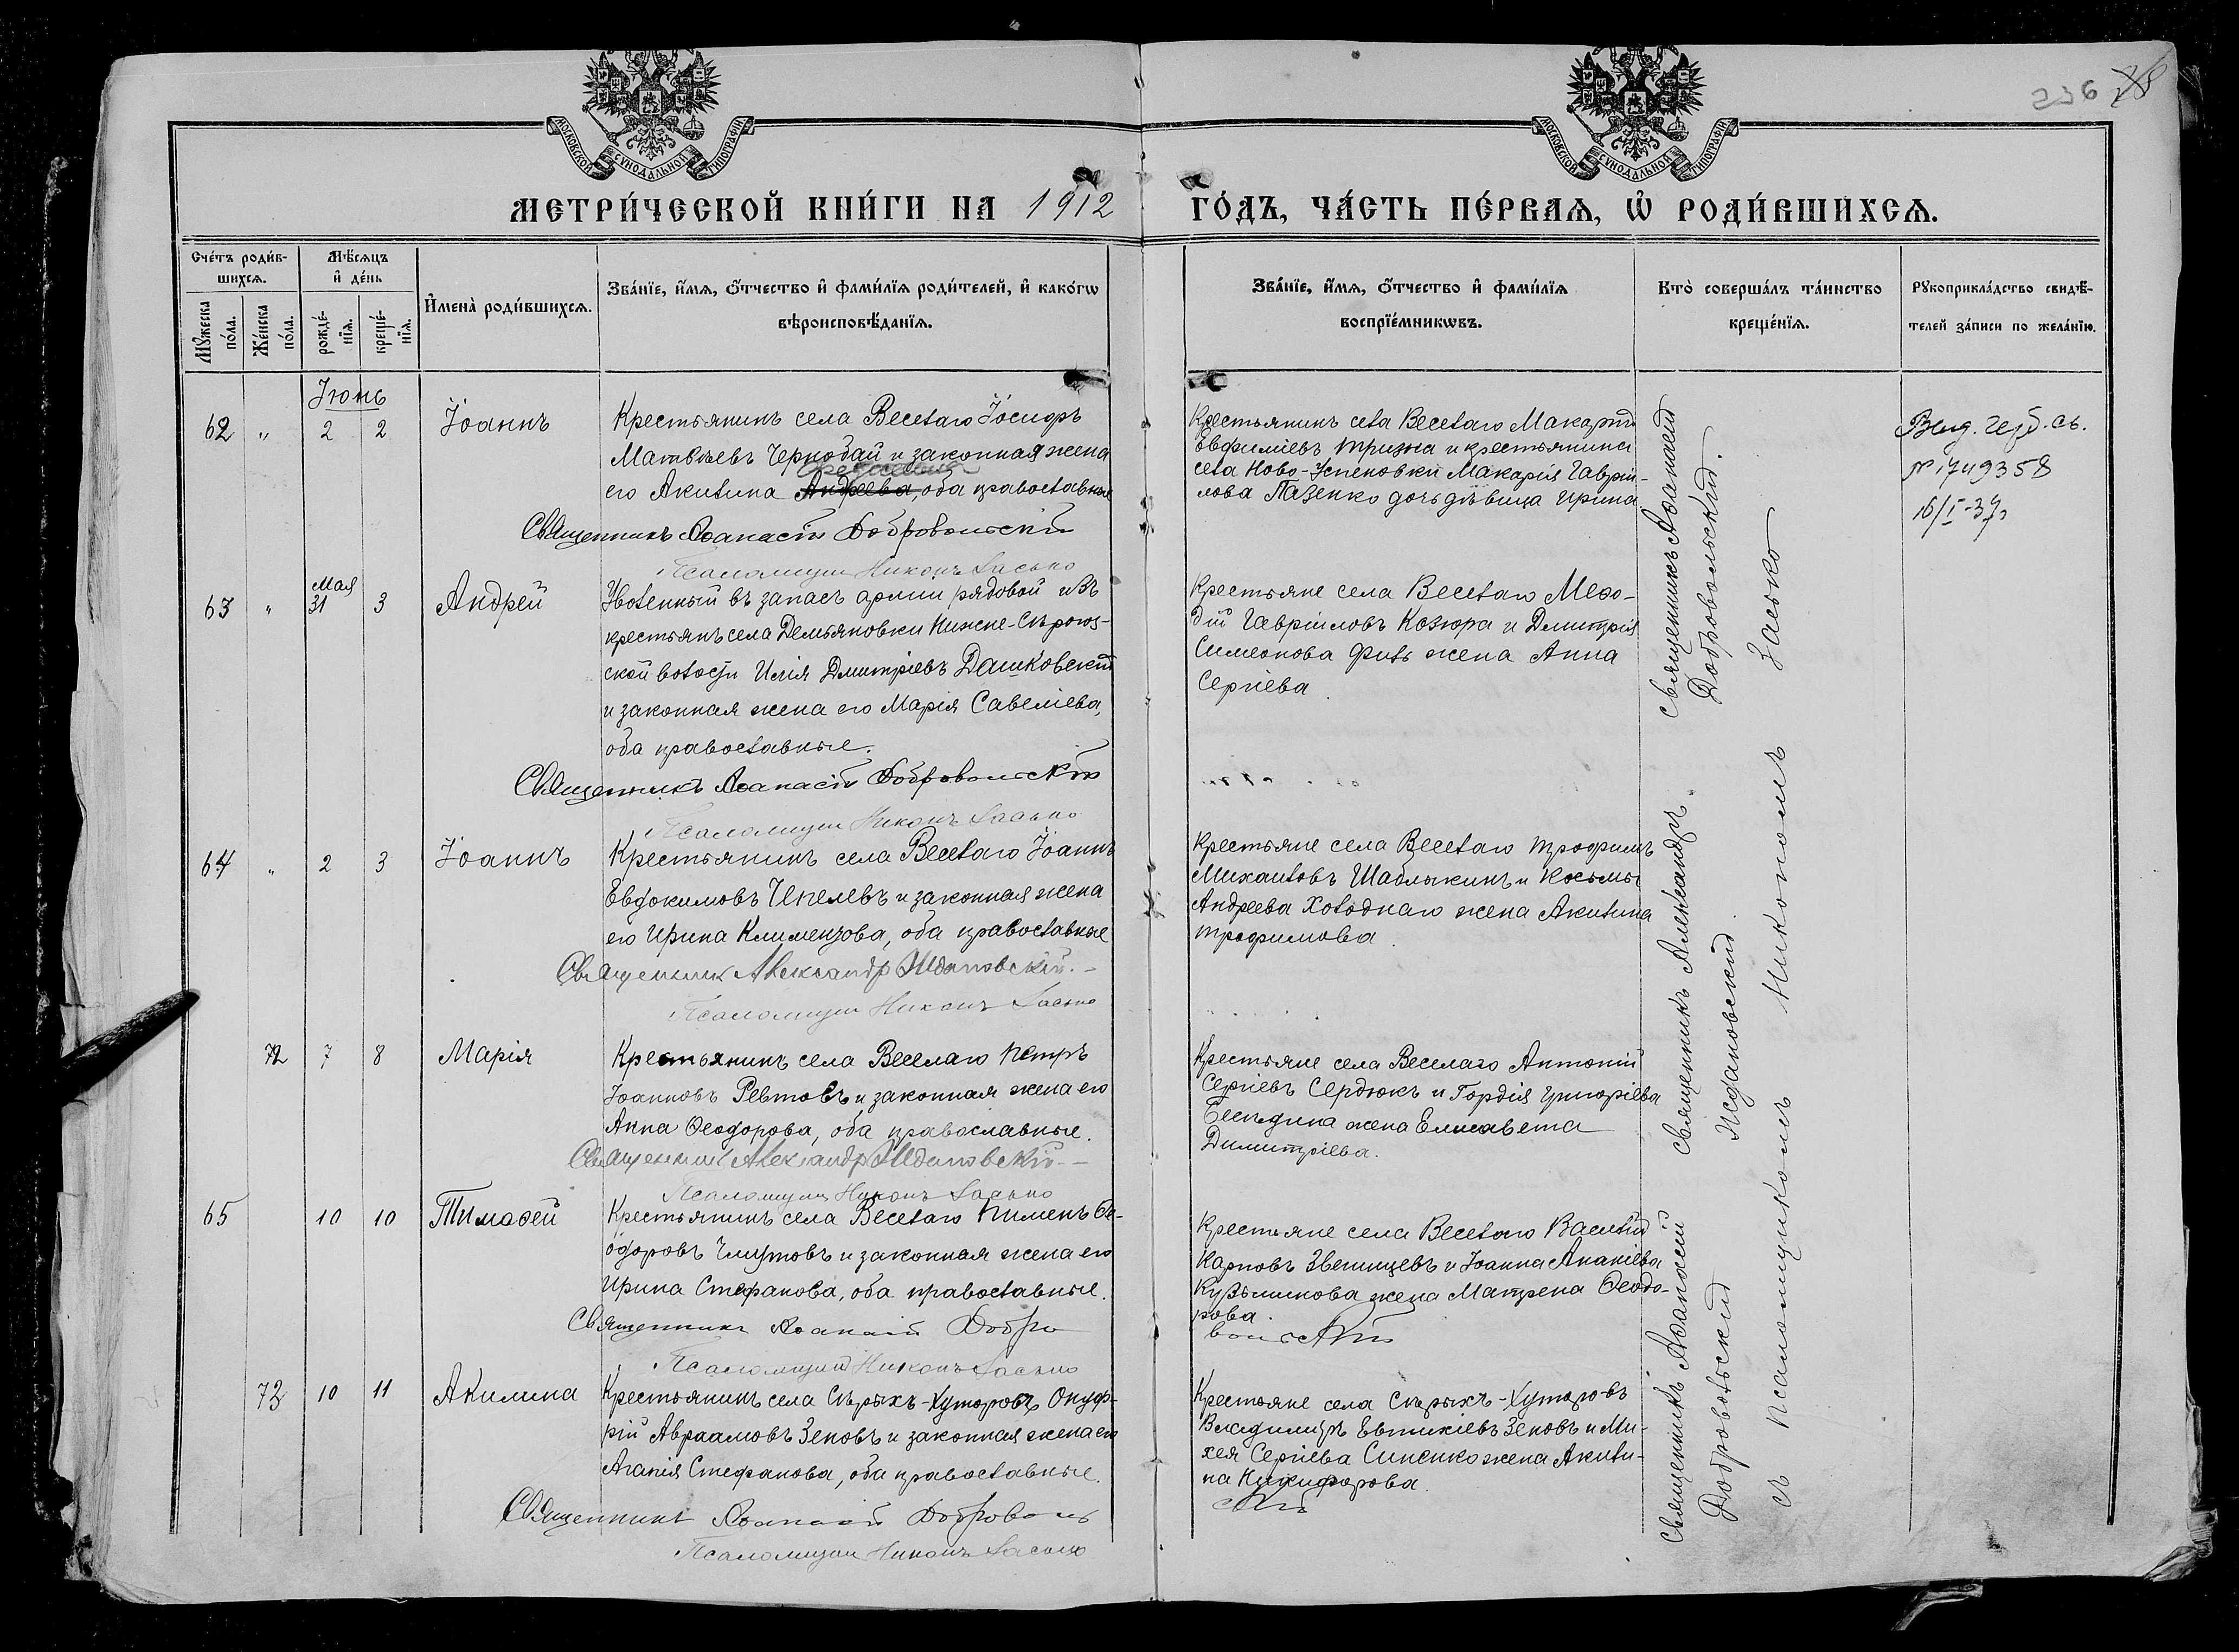 МОСКОВСКОЙ СѴНОДАЛЬНОЙ ТИПОГРАФІИ
МОСКОВСКОЙ СѴНОДАЛЬНОЙ ТИПОГРАФІИ
236
МЕТРИ́ЧЕСКОЙ КНИ́ГИ НА 1912 ГО́ДЪ, ЧА́СТЬ ПЕ́РВАѦ, Ѡ҆ РОДИ́ВШИХСѦ.
Сче́тъ роди́в-
шихсѧ.
Мꙋжеска по́ла.
Же́нска по́ла.
Мѣ́сѧцъ
и҆ де́нь
рожде́-
нїѧ.
креще́-
нїѧ.
И҆мена̀ роди́вшихсѧ.
Зва́нїе, и҆́мѧ, ѻ҆́тчество и҆ фами́лїѧ роди́телей, и҆ како́гѡ
вѣроисповѣ́данїѧ.
Зва́нїе, и҆́мѧ, ѻ҆́тчество и҆ фами́лїѧ
воспрїе́мникѡвъ.
Кто̀ соверша́лъ та́инство
креще́нїѧ.
Рꙋкоприкла́дство свидѣ́-
телей за́писи по жела́нїю.
Іюнь
62 „ 2 2 Іоаннъ
Крестьянинъ села Веселаго Іосифъ
Матвѣевъ Чернобай и законная жена
его Акилина Андреева, оба православные
Священникъ Аѳанасій Добровольскій
Псаломщик Никонъ Засько
Крестьянинъ села Веселаго Макарій
Евфиміевъ Тризна и крестьянина
села Ново-Успеновки Макарія Гаврій-
лова Пазенко дочь дѣвица Ирина
Выд. герб. св.
№ 1749358
16/I-37г
63 „ Мая 31 3 Андрей
Уволенный въ запасъ арміи рядовой изъ
крестьянъ села Демьяновки Нижне-Сѣрогоз-
ской волости Илія Дмитріевъ Дашковскій
и законная жена его Марія Савеліева,
оба православные.
Священникъ Аѳанасій Добровольскій
Псаломщик Никонъ Засько
Крестьяне села Веселаго Меѳо-
дій Гавріиловъ Козюра и Дмитрія
Симеонова Филь жена Анна
Сергіева.
64 „ 2 3 Іоаннъ
Крестьянинъ села Веселаго Іоаннъ
Евдокимовъ Чепелевъ и законная жена
его Ирина Климентова, оба православные
Священник Александр Ждановскій.
Псаломщик Никонъ Засько
Крестьяне села Веселаго Трофимъ
Михаиловъ Шаблыкинъ и Космы
Андреева Холоднаго жена Акилина
Трофимова.
72 7 8 Марія
Крестьянинъ села Веселаго Петръ
Іоанновъ Ревтовъ и законная жена его
Анна Ѳеодорова, оба православные.
Священник Александр Ждановскій
Псаломщик Никонъ Засько
Крестьяне села Веселаго Антоній
Сергіевъ Сердюкъ и Гордія Григоріева
Бесѣдина жена Елисавета
Димитріева.
65 10 10 Тимоѳей
Крестьянинъ села Веселаго Пименъ Ѳе-
одоровъ и законная жена его
Ирина Стефанова, оба православные.
Священникъ Аѳанасій Добро
вольскій
Псаломщик Никонъ Засько
Крестьяне села Веселаго Василій
Карповъ Звенищевъ и Іоанна Ананіева
Кузьминова жена Матрена Ѳеодо-
рова.
73 10 11 Акилина
Крестьянинъ села Сѣрыхъ-Хуторовъ Онуф-
рій Авраамовъ Зеновъ и законная жена его
Агапія Стефанова, оба православные.
Священникъ Аѳанасій Доброволь
скій
Псаломщик Никонъ Засько
Крестьяне села Сѣрыхъ-Хуторовъ
Владиміръ Евтихіевъ Зеновъ и Ми-
хея Сергіева Синенко жена Акили-
на Никифорова.
Священникъ Аѳанасій
Добровольскій.
Священникъ Александръ
Ждановскій.
Священникъ Аѳанасій
Добровольскій
съ псаломщикомъ Никономъ Засько